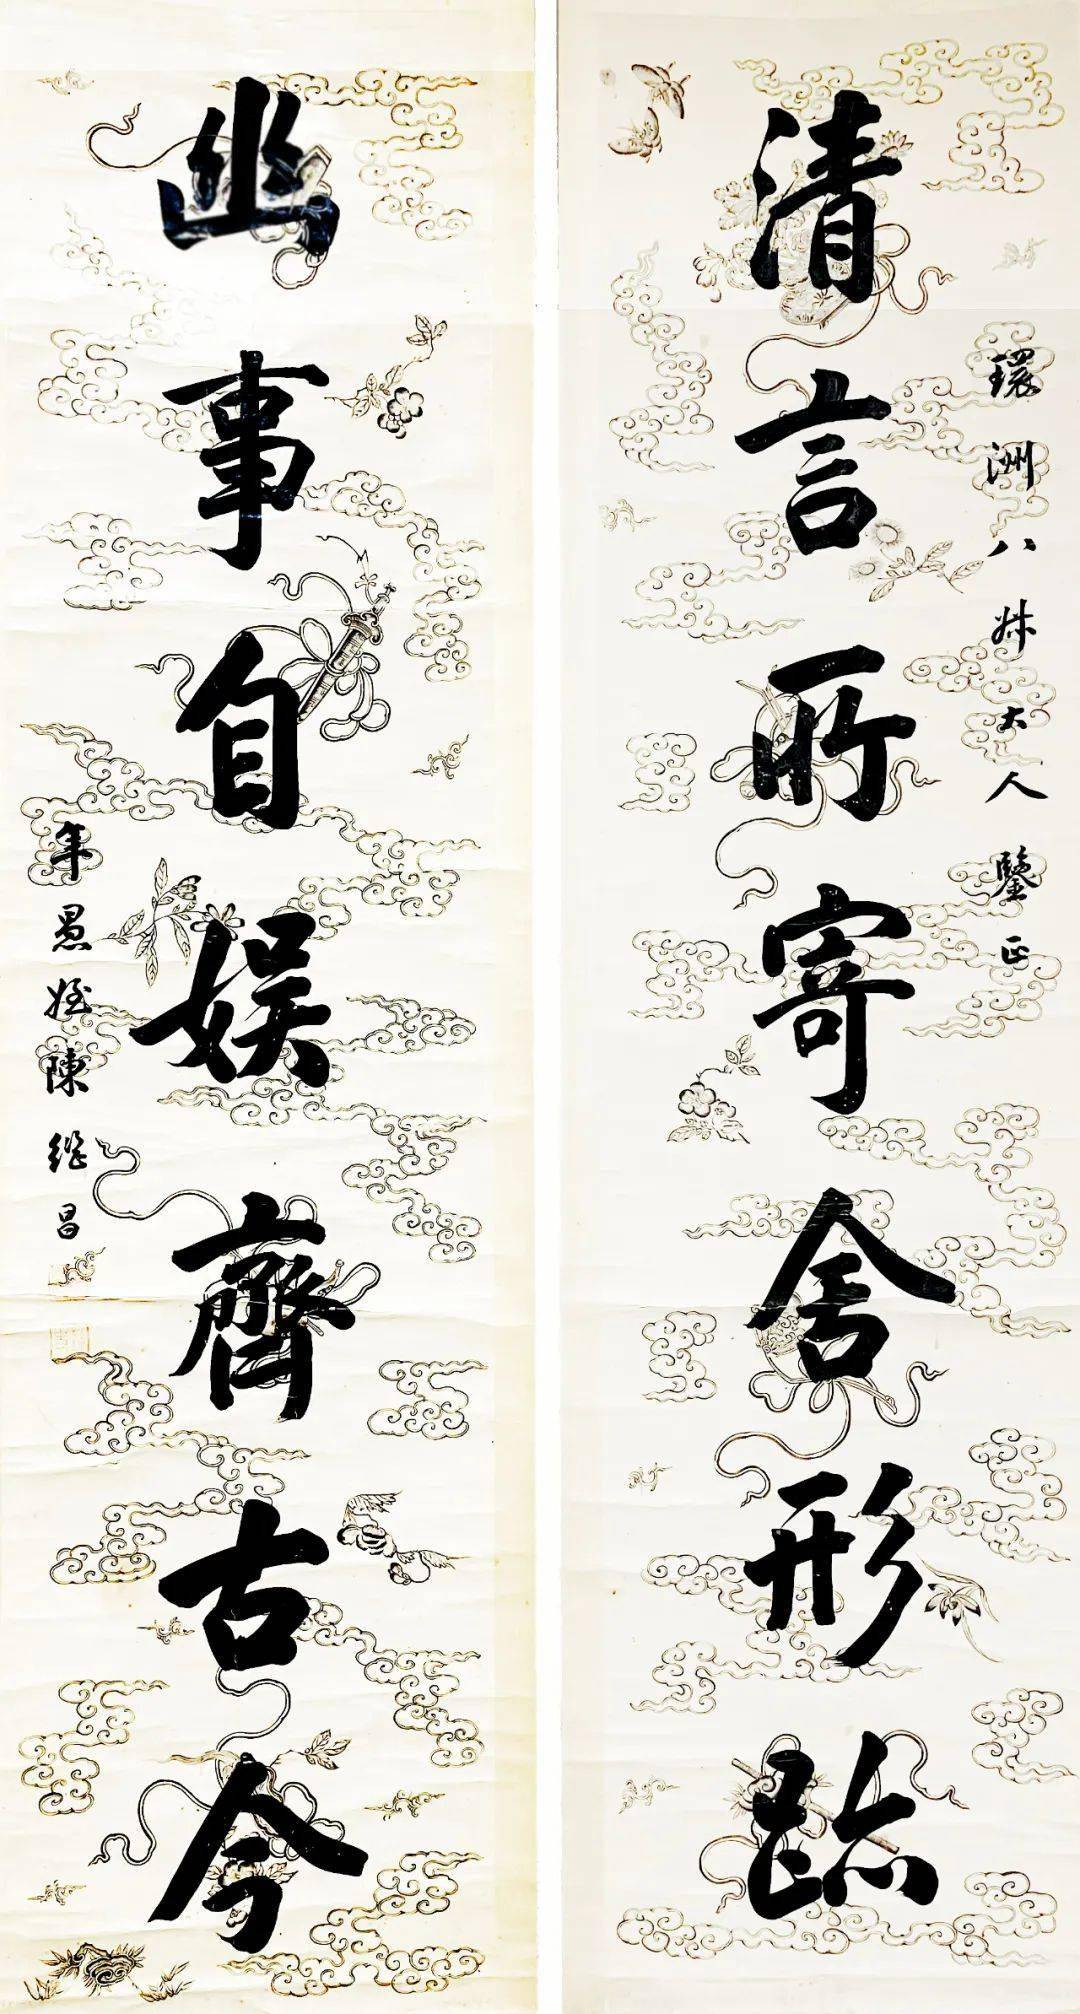 清言所寄舍形跡
環洲八叔大人鑒正
幽事自娛齊古今
年愚姪陳繼昌